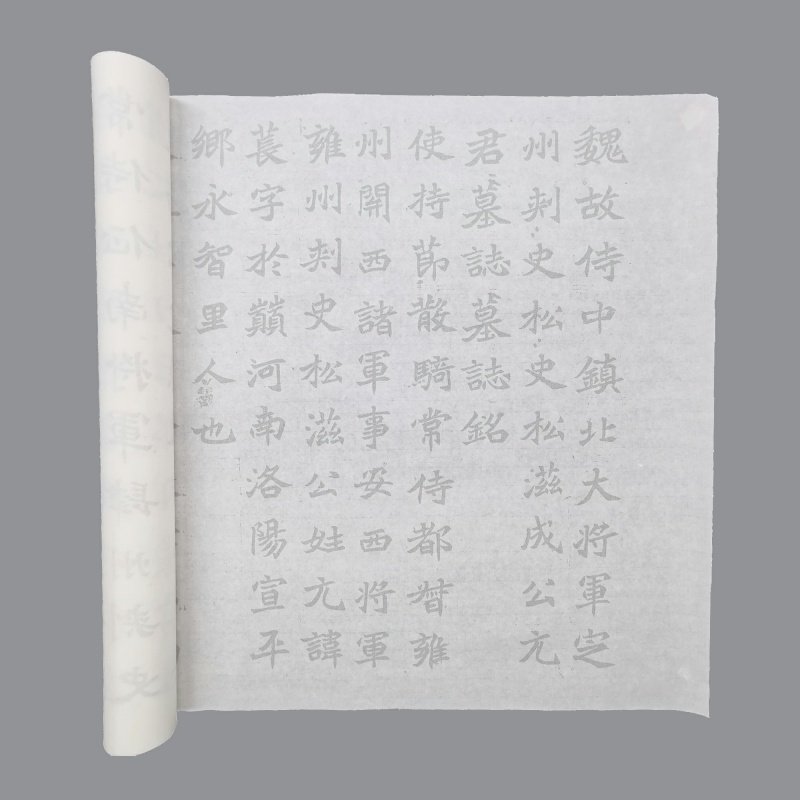 魏故侍中鎮北大將軍定
州刺史松史松滋成公元
君墓誌墓誌銘
使持節散騎常侍都督雍
州開西諸軍事安西將軍
雍州刺史松滋公姓元諱
萇字於巔河南洛陽宣平
鄉永智里人也